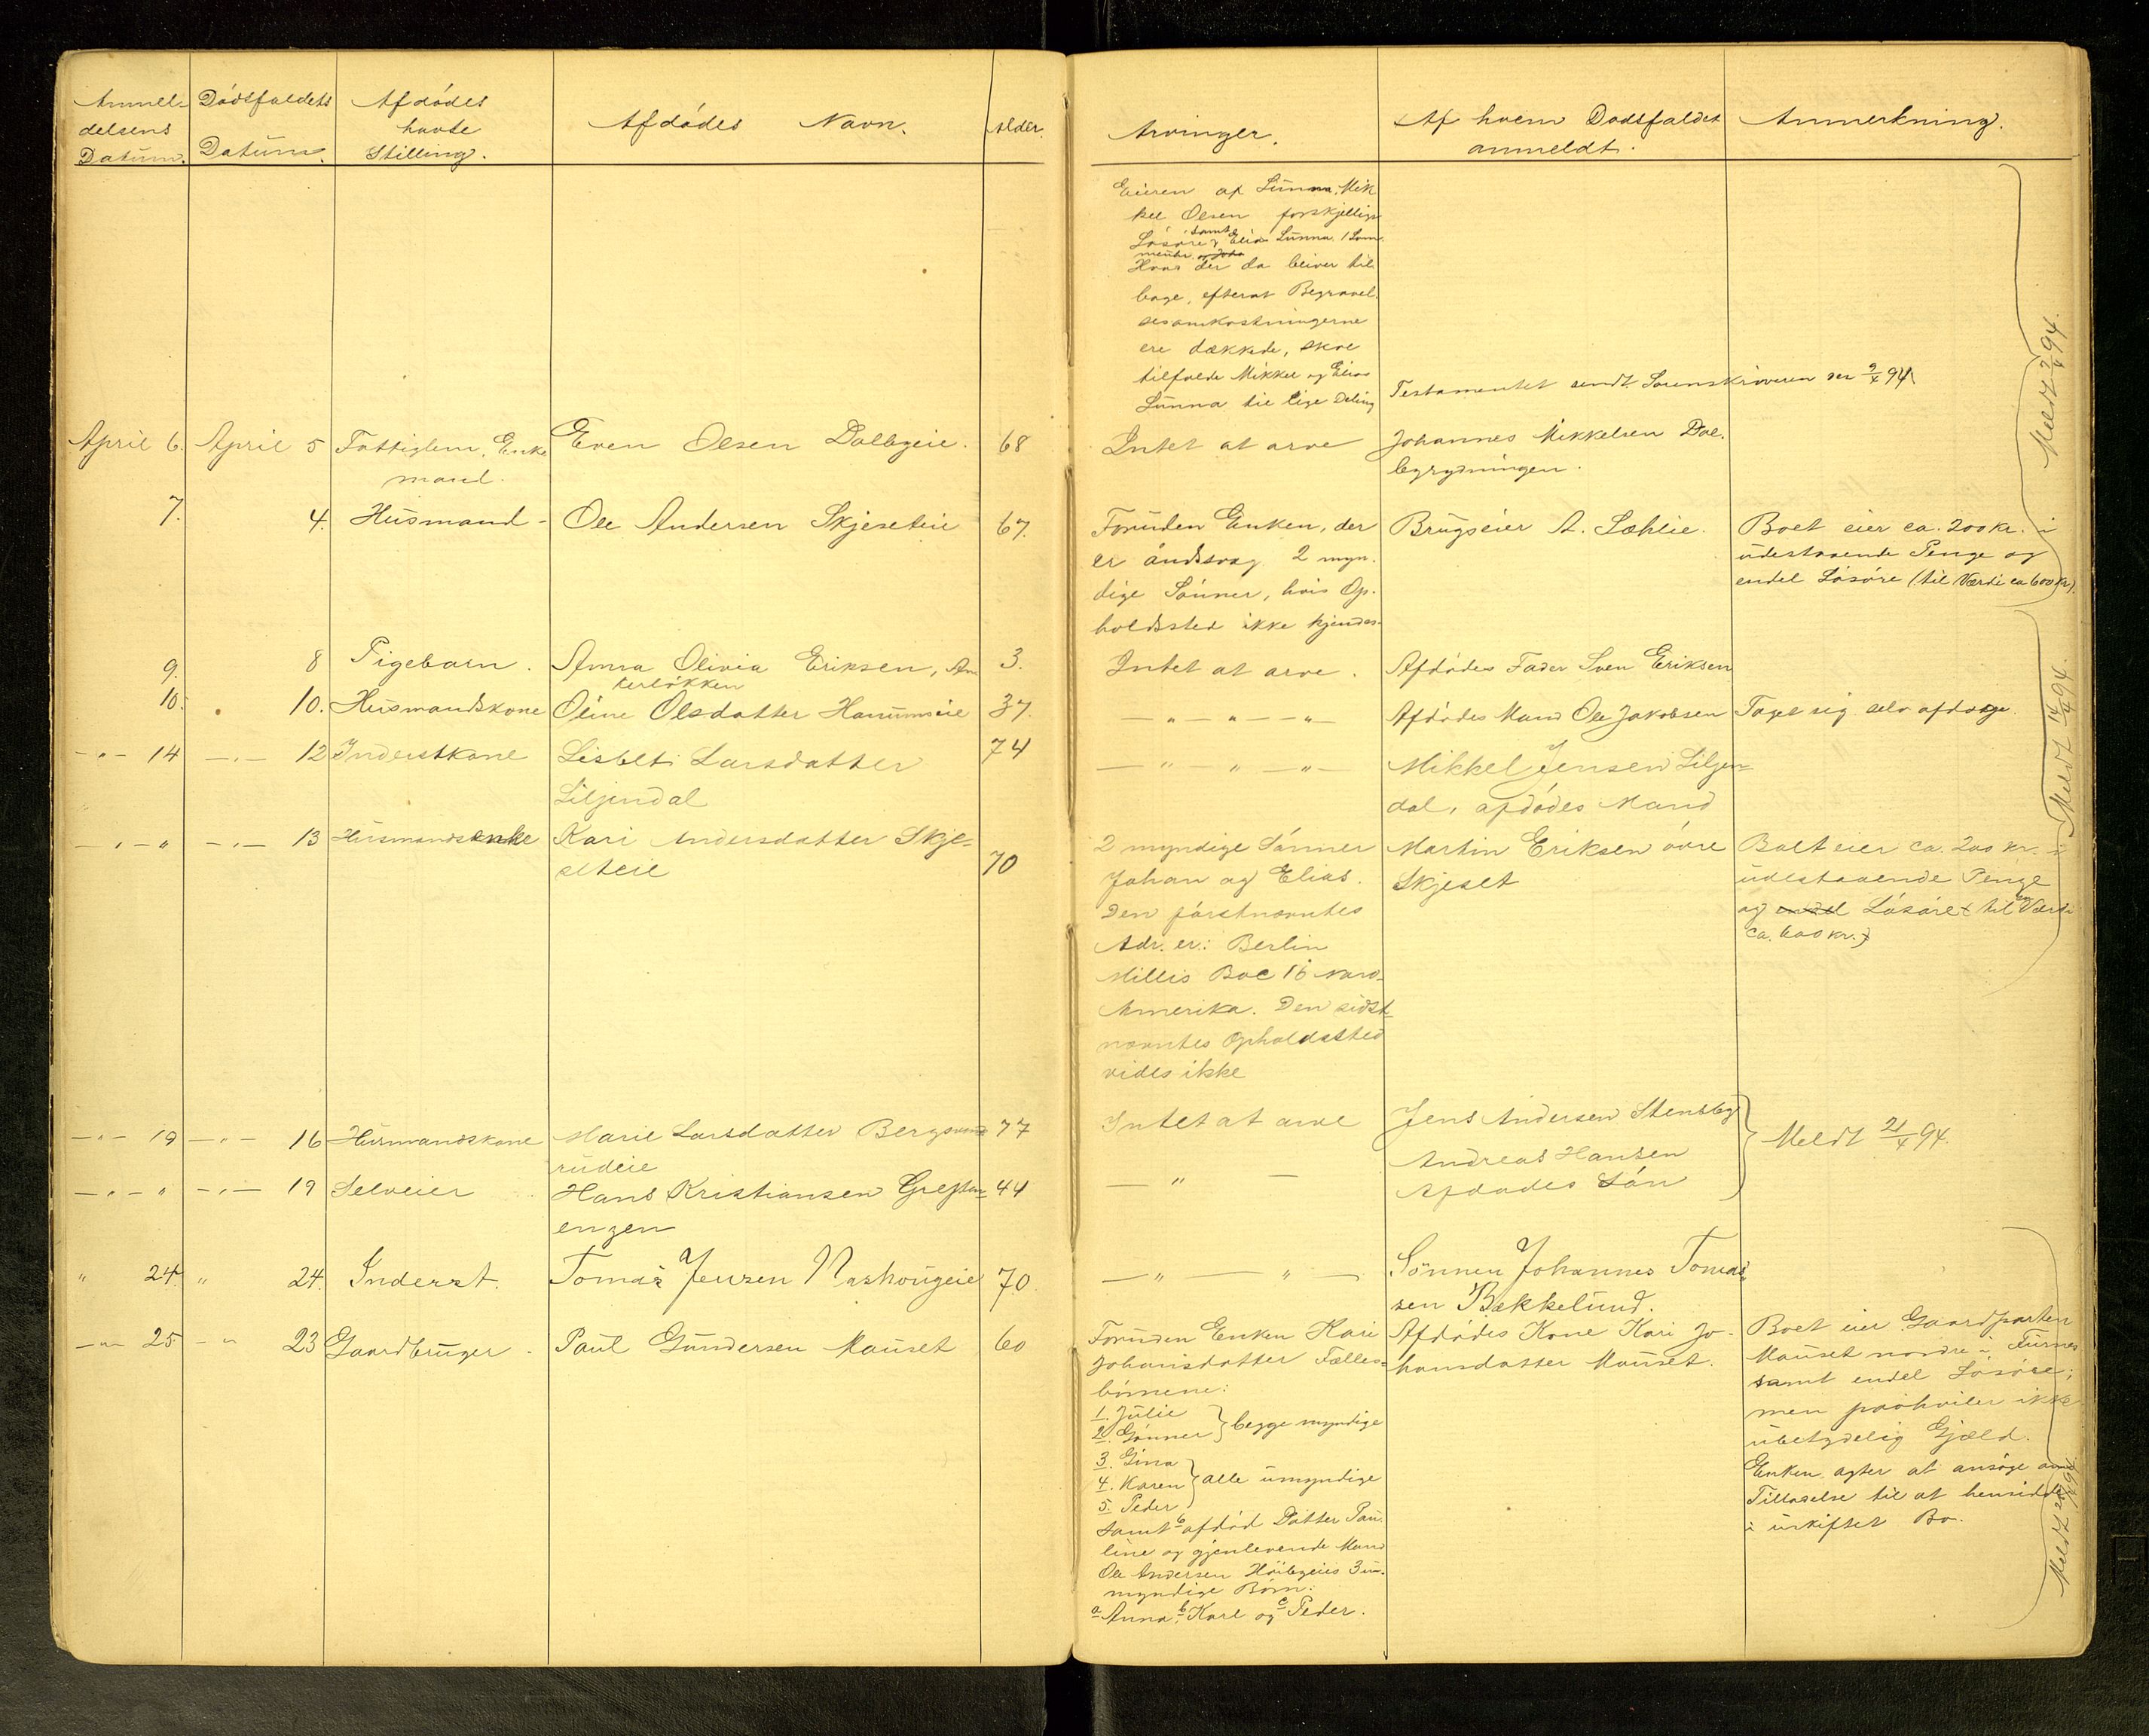 Anmel-
delsens
Datum.
Dödsfaldets
Datum.
Afdödes
havte
Stilling.
Afdödes Navn.
Alder.
Arvinger.
Af hvem Dødsfaldet
anmeldt.
Anmerkning.
Eieren af Lunna, Mik
kel Olsen forskjellige
samt
Lösöre Elias Lunna
Hvad der da bliver til
bage, efterat Begravel
sesomkostningerne
ere dækkede, skal
tilfalde Mikkel og Elias
Lunna til lige Deling
Testamentet sendt Sorenskriveren 9/4 94
April 6. April 5 Fattiglem, Enke
mand.
Even Olsen Dalbyeie. 68
Intet at arve
Johannes Mikkelsen Dal.
byrydningen.
7. 4. Husmand - Ole Andersen Skjeseteie 67.
Foruden Enken, der
er åndssvag 2 myn.
dige Sönner, hvis Op.
holdssted ikke kjendes.
Brugseier A. Sæhlie.
Boet eier ca. 200 kr. i
udestaaende Penge og
endel Lösöre (til Værdi ca 600 kr).
Meldt 9/4 94.
9. 8 Pigebarn. Anna Olivia Eriksen, An
kerløkken
3.
Intet at arve.
Afdödes Fader Sven Eriksen
10. 10. Husmandskone Oline Olsdatter Hanumseie 37.
— " — " — " —
Afdödes Mand Ole Jakobsen
Taget sig selv afdage.
— " — 14 — " — 12 Inderstkone Lisbet Larsdatter
Liljendal
74
— " — " — " —
Mikkel Jensen Liljen=
dal, afdödes Mand
Meldt 14/4 94.
— " — " — " — 13 Husmandsenke Kari Andersdatter Skje=
seteie
70
2 myndige Sönner
Johan og Elias.
Den förstnævntes
Adr. er: Berlin
Millis Boc 16 Nord-
Amerika. Den sidst=
nævntes Opholdssted
vides ikke
Martin Eriksen övre
Skjeset
Boet eier ca. 200 kr. i
udestaaende Penge
og endel Lösöre til Værdi
ca. 600 kr.)
— " — 19 — " — 16 Husmandskone Marie Larsdatter Bergsund
rudeie
77
Intet at arve
Jens Andersen Stensby
Meldt 21/4 94.
— " — " — " — 19 Selveier Hans Kristiansen Greften=
engen
44
— " —
Andreas Hansen
Afdødes Sön
" 24. " 24. Inderst. Tomas Jensen Nashougeie 70
— " — " —
Sønnen Johannes Tomas
sen Bækkelund.
— " — 25 — " 23 Gaardbruger - Paul Gundersen Mauset 60
Foruden Enken Kari
Johansdatter Fælles=
börnene:
1. Julie
2. Gunner } begge myndige
3. Gina
4. Karen } alle umyndige
5. Peder
samt 6 afdöd Datter Pau.
line og gjenlevende Mand
Ole Andersen Houbyeies 3 u.
myndige Börn:
a Anna, b Karl og c Peder.
Afdödes Kone Kari Jo-
hansdatter Mauset.
Boet eier Gaardparten
Mauset nordre i Furnes
samt endel Lösöre;
men paahviler ikke
ubetydelig Gjæld.
Enken agter at ansöge om
Tilladelse til at hensidde
i uskiftet Bo.
Meldt 28/4 94.